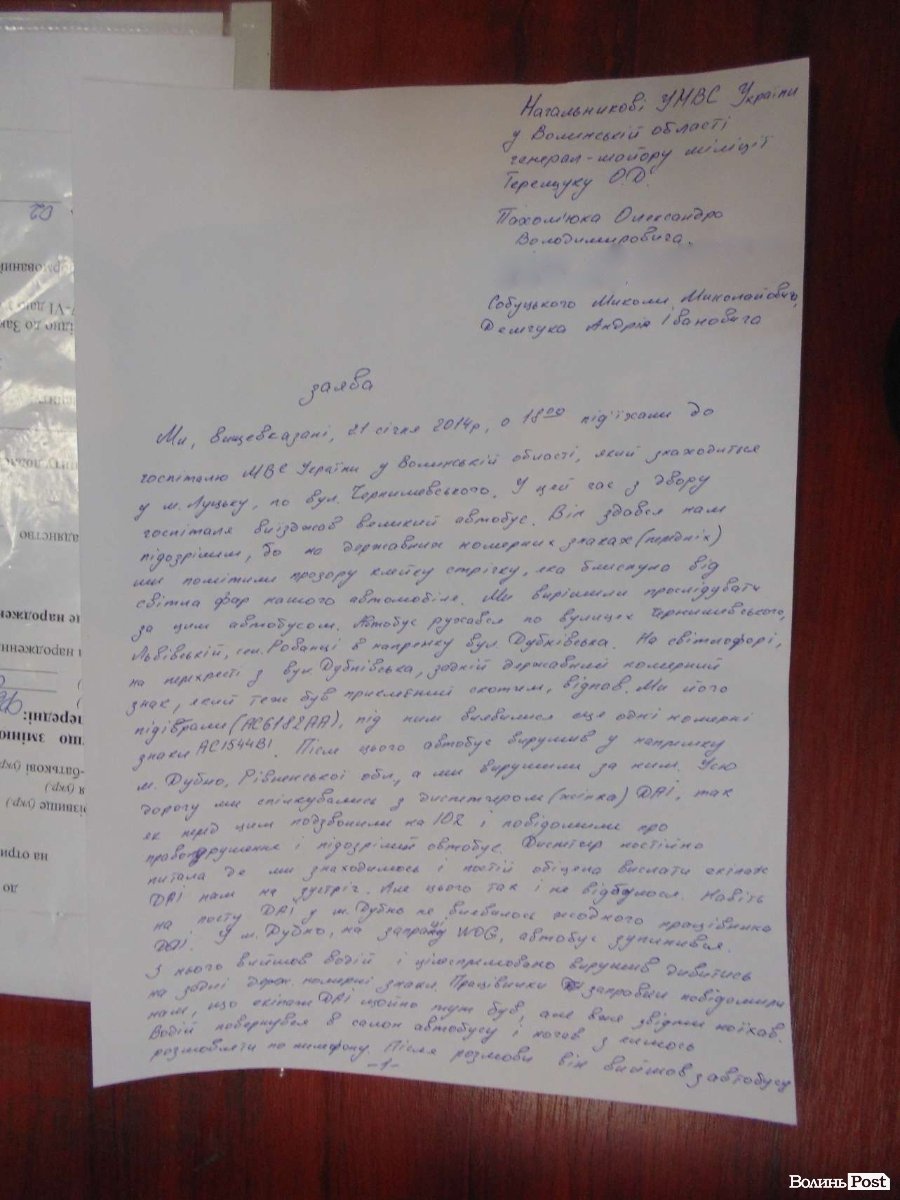 Начальникові УМВС України
у Волинській області
генерал-майору міліції
Терещуку О.Д.
Пахом'юка Олександра
Володимировича.
Собуцького Миколи Миколайовича,
Демчука Андрія Івановича
заява
Ми, вищевказані, 21 січня 2014р, о 18⁰⁰ під'їхали до
госпіталю МВС України у Волинській області, який знаходиться
у м. Луцьку, по вул. Чернишевського. У цей час з двору
госпіталя виїзджав великий автобус. Він здався нам
підозрілим, бо на державних номерних знаках (передніх)
ми помітили прозору клейку стрічку, яка блиснула від
світла фар нашого автомобіля. Ми вирішили прослідувати
за цим автобусом. Автобус рухався по вулицях Чернишевського,
Львівській, в напрямку вул. Дубнівська. На світлофорі,
на перехресті з вул. Дубнівська, задній державний номерний
знак, який теж був приклеїний скотчем, відпав. Ми його
підібрали (АС6182АА), під ним виявилися ще одні номерні
знаки АС1544ВІ. Після цього автобус вирушив у напрямку
м. Дубно, Рівненської обл, а ми вирушили за ним. Усю
дорогу ми спілкувались з диспетчером (жінка) ДАІ, так
як перед цим подзвонили на 102 і повідомили про
правопорушення і підозрілий автобус. Диспетчер постійно
питала де ми знаходимось і обіцяла вислати екіпаж
ДАІ нам на зустріч. Але цього так і не відбулося. Навіть
на посту ДАІ у м. Дубно не виявилось жодного працівника
ДАІ. У м. Дубно, на заправці WOG, автобус зупинився.
З нього вийшов водій і цілеспрямовано вирушив дивитись
на задні держ. номерні знаки. Працівники заправки повідомили
нам, що екіпаж ДАІ щойно тут був, але вже звідти поїхав.
Водій повернувся в салон автобусу і почав з кимось
розмовляти по телефону. Після розмови він вийшов з автобусу
-1-
02
надання
адянство
не народжен
народження
що змінює
-батькові (укр.)
я (укр.)
ізвище (укр.)
на отри
до
ВолиньPost